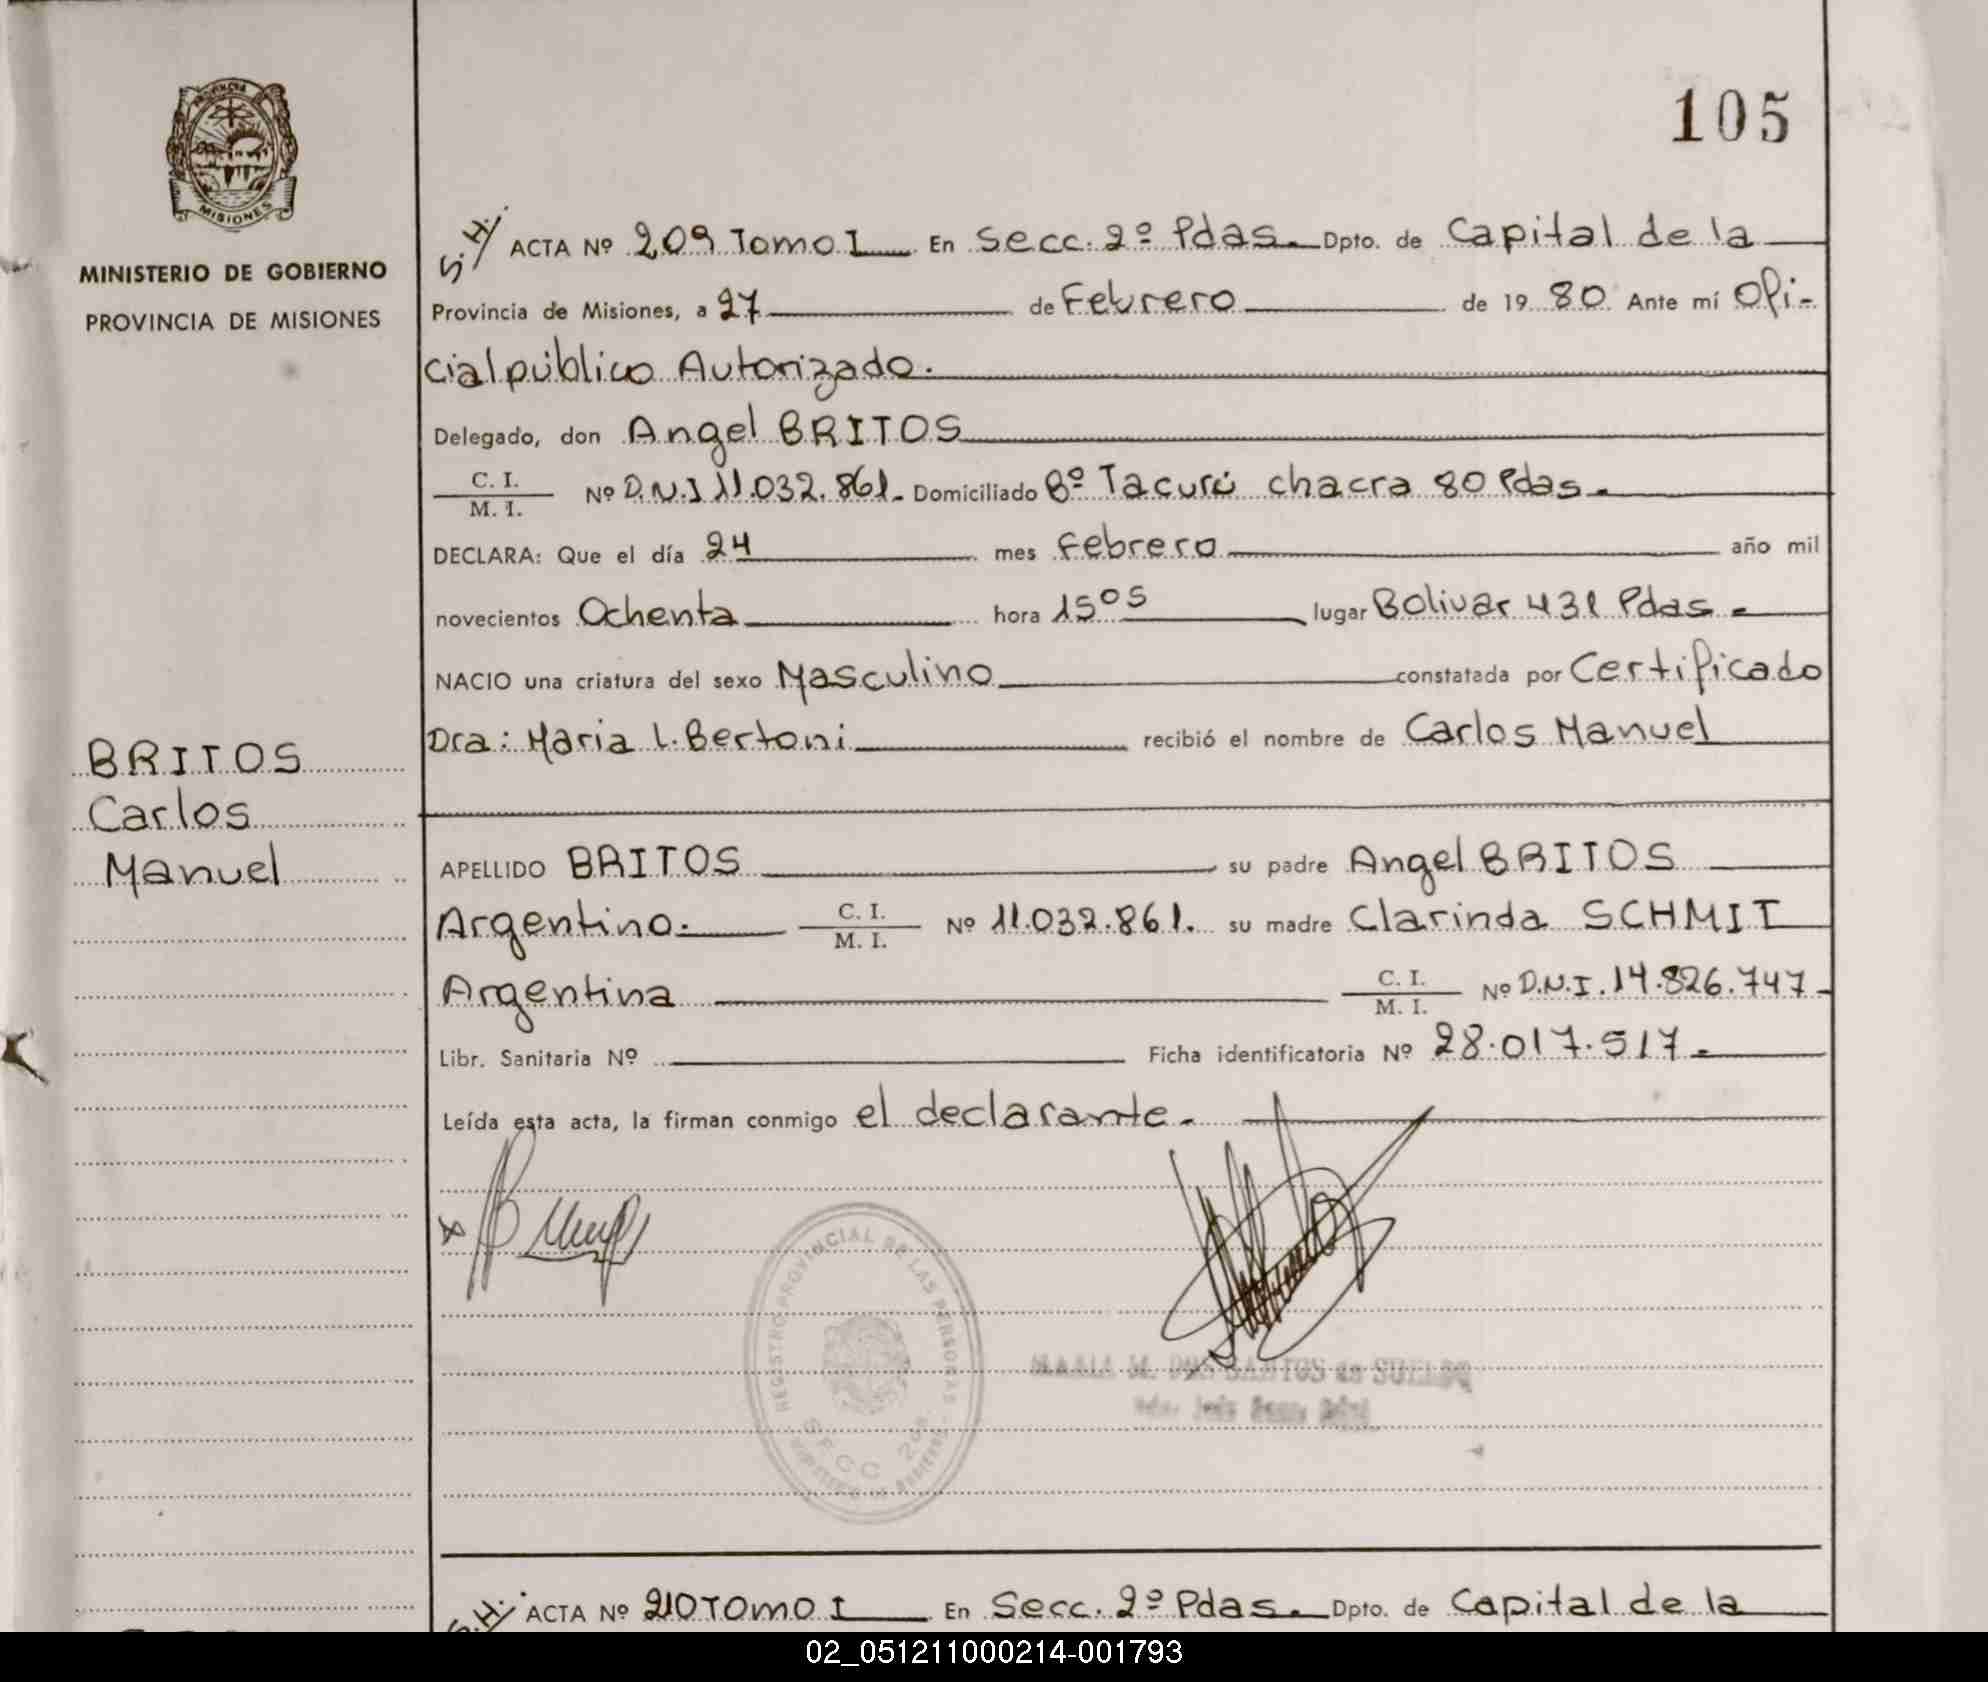 105
PROVINCIA
MISIONES
MINISTERIO DE GOBIERNO
PROVINCIA DE MISIONES
S.H/ ACTA Nº 209 Tomo I En Secc. 2º Pdas. Dpto. de Capital de la
Provincia de Misiones, a 27 de Febrero de 19 80 Ante mí Ofi-
cial público Autorizado.
Delegado, don Angel BRITOS
C. I.
M. I.
Nº D.N.I 11.032.861. Domiciliado Bº Tacurú chacra 80 Pdas.
DECLARA: Que el día 24 mes Febrero año mil
novecientos Ochenta hora 15 05 lugar Bolivar 431 Pdas.
NACIO una criatura del sexo Masculino constatada por Certificado
Dra: Maria L. Bertoni recibió el nombre de Carlos Manuel
BRITOS
Carlos
Manuel
APELLIDO BRITOS su padre Angel BRITOS
Argentino. C. I. M. I. Nº 11.032.861. su madre Clarinda SCHMIT
Argentina C. I. M. I. Nº D.N.I. 14.826.747
Libr. Sanitaria Nº Ficha identificatoria Nº 28.017.517.
Leída esta acta, la firman conmigo el declarante.
REGISTRO PROVINCIAL DE LAS PERSONAS
SECC 2da
MARIA M. DOS SANTOS de
S.H/ ACTA Nº 210 TOMO I En Secc. 2º Pdas. Dpto. de Capital de la
02_051211000214-001793